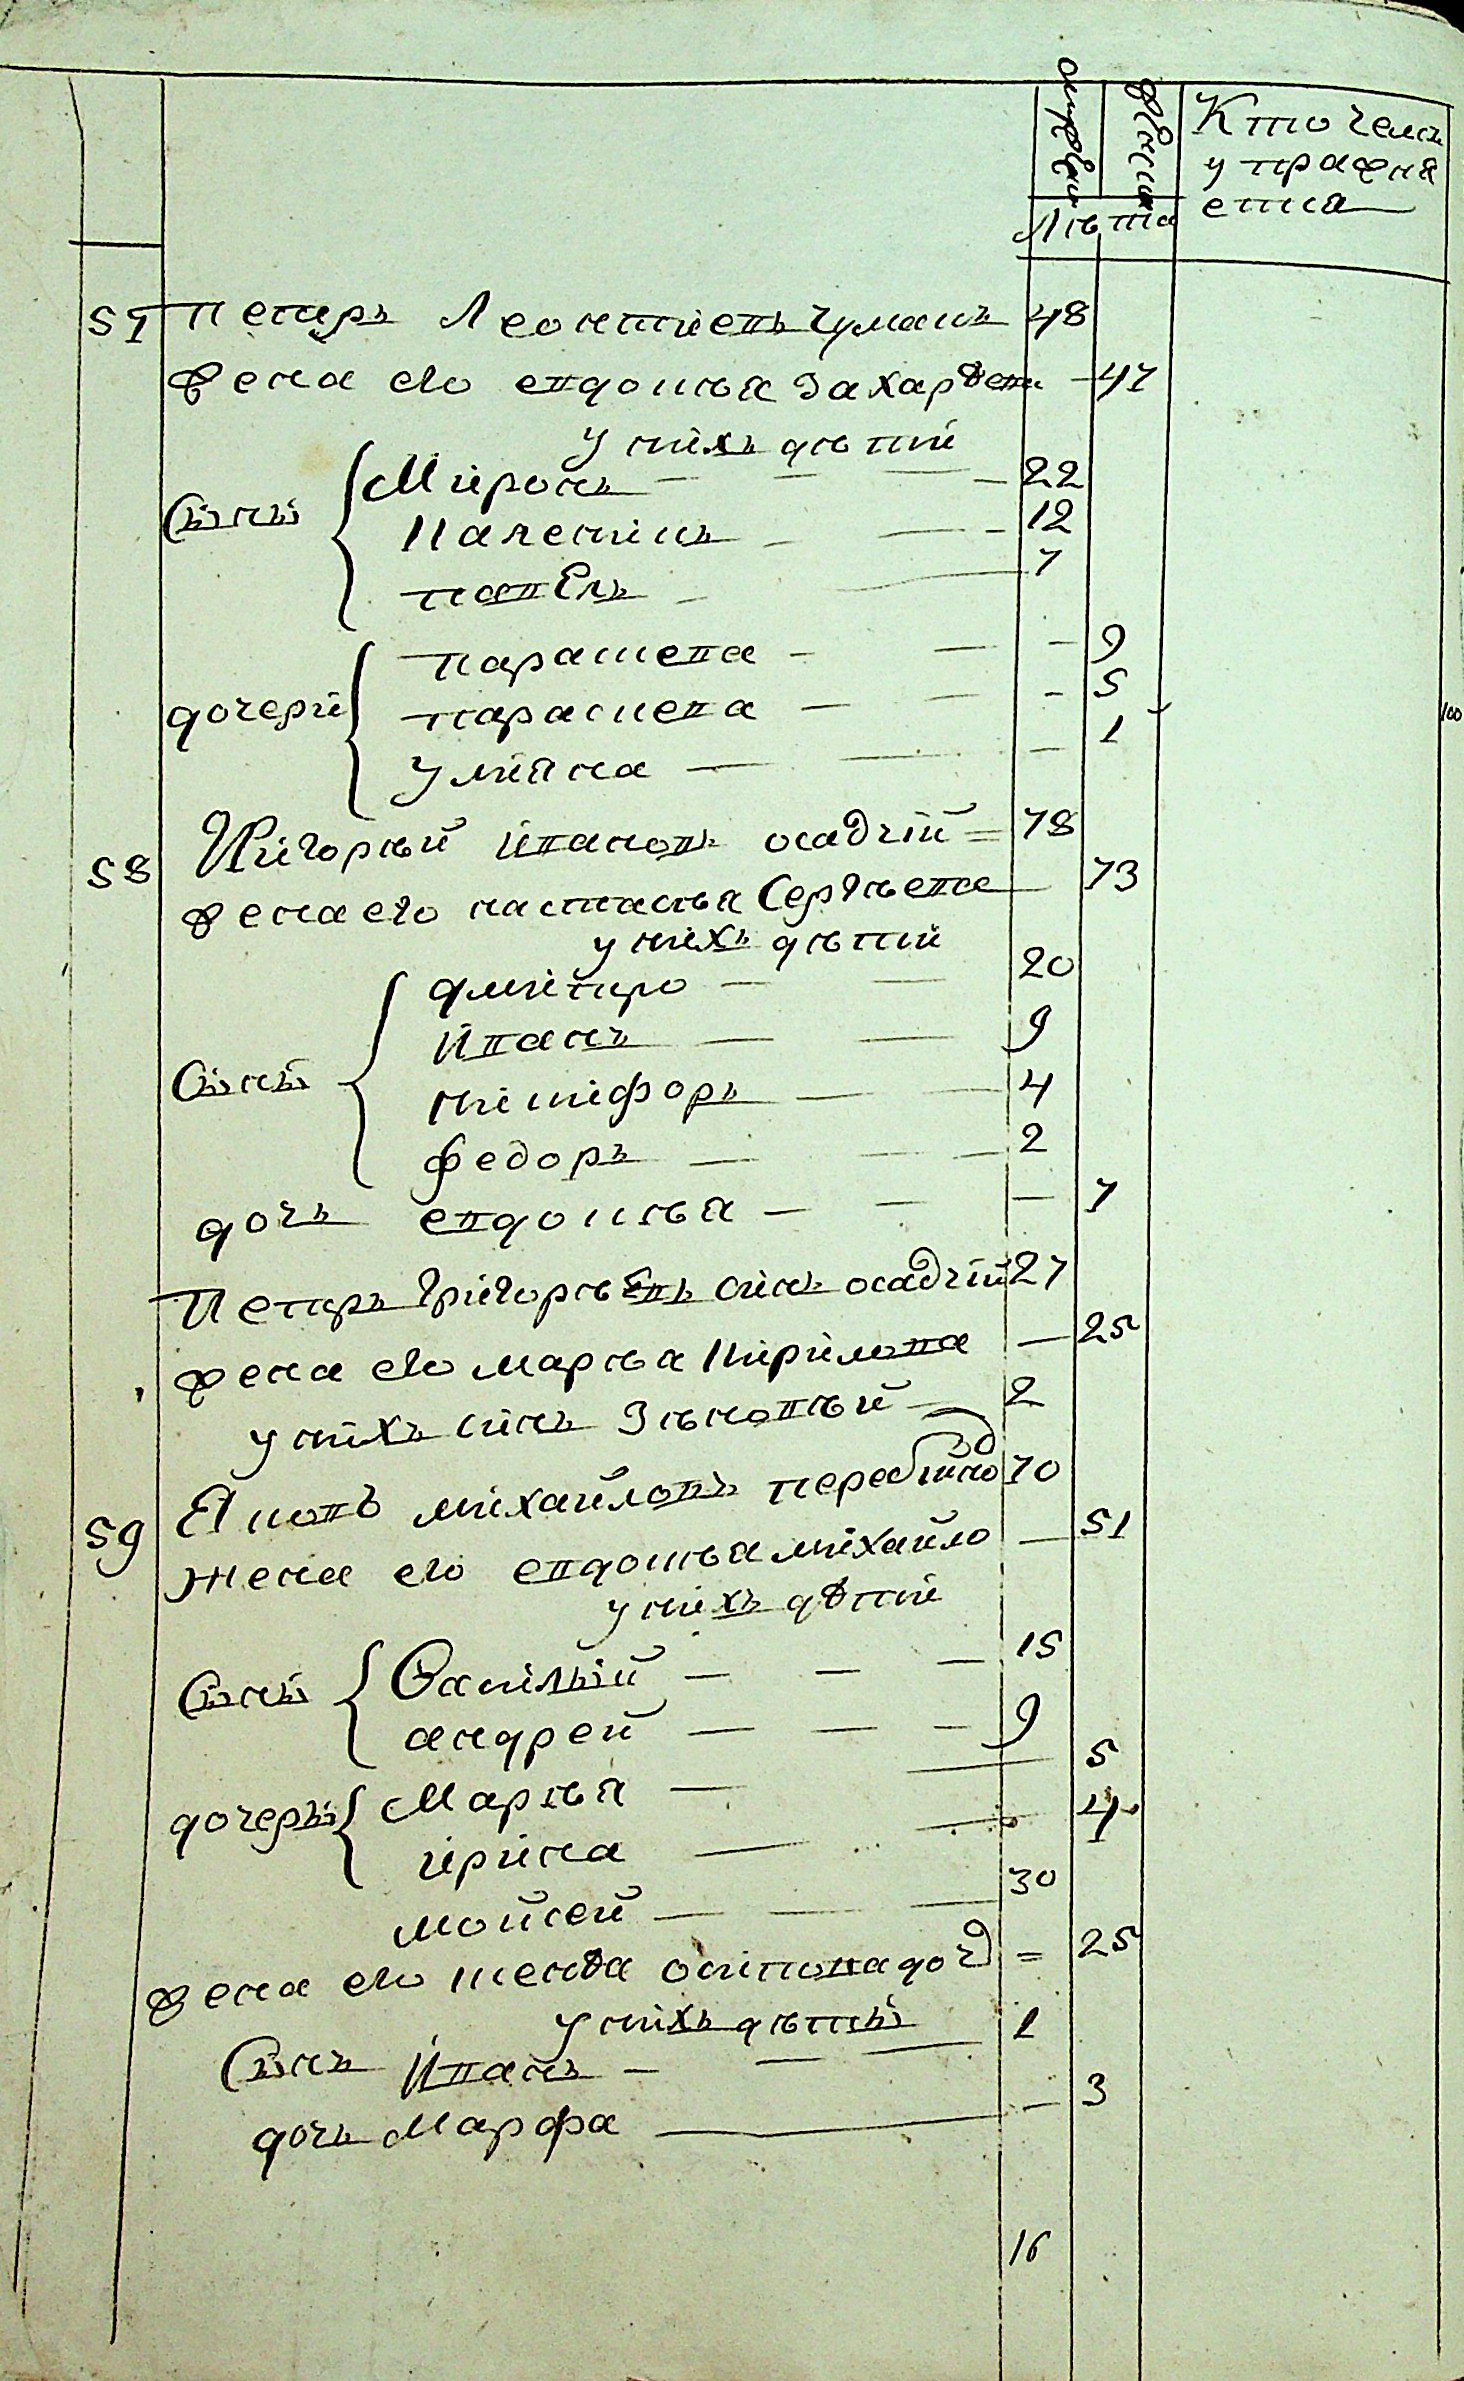 мужескъ женска Кто чемъ
упражня
ется
Лѣта
57 Петръ Леонтиевъ Чумакъ 48
жена его евдокѣя Захарьева 47
у нихъ дѣти
Сыны Миронъ 22
Калениkъ 12
павелъ 7
парашева 9
дочери параскева 5
улияна 1
58 Григорѣй ивановъ осадчій 78
жена его настасѣя Сергѣева 73
у нихъ дѣтий
дмитро 20
иванъ 9
Сыны никифоръ 4
федоръ 2
дочь евдокѣя 7
Петръ Григорѣевъ синъ осадчій 27
жена его марѣя кирилова 25
у нихъ синъ Зѣновѣй 2
59 Яковъ михайловъ 70
жена его евдокѣя михайло 51
у нихъ дѣти
Сыны Василый 15
андрей 9
дочеры Марѣя 5
ирина 4
мойсей 30
жена его осипова доч 25
у нихъ дѣты
Сынъ иванъ 1
дочь Марфа 3
16
100